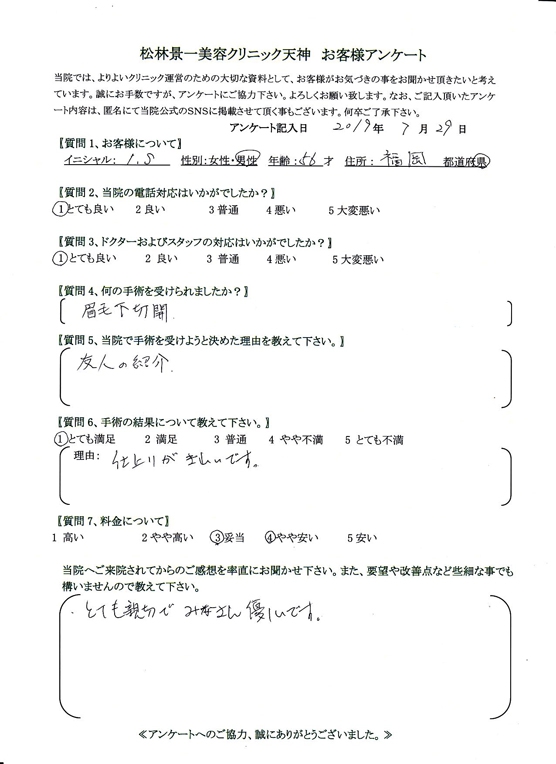 松林景一美容クリニック天神 お客様アンケート
当院では、よりよいクリニック運営のための大切な資料として、お客様がお気づきの事をお聞かせ頂きたいと考え
ています。誠にお手数ですが、アンケートにご協力下さい。よろしくお願い致します。なお、ご記入頂いたアンケ
ート内容は、匿名にて当院公式のSNSに掲載させて頂く事もございます。何卒ご了承下さい。
アンケート記入日 2019年 7月 29日
〖質問1、お客様について〗
イニシャル: I.S 性別:女性・男性 年齢:56才 住所: 福岡 都道府県
〖質問2、当院の電話対応はいかがでしたか?〗
①とても良い 2 良い 3 普通 4 悪い 5 大変悪い
〖質問3、ドクターおよびスタッフの対応はいかがでしたか?〗
①とても良い 2 良い 3 普通 4 悪い 5 大変悪い
〖質問4、何の手術を受けられましたか?〗
眉毛下切開
〖質問5、当院で手術を受けようと決めた理由を教えて下さい。〗
友人の紹介.
〖質問6、手術の結果について教えて下さい。〗
①とても満足 2 満足 3 普通 4 やや不満 5 とても不満
理由: 仕上りがきれいです。
〖質問7、料金について〗
1 高い 2 やや高い ③妥当 ④やや安い 5 安い
当院へご来院されてからのご感想を率直にお聞かせ下さい。また、要望や改善点など些細な事でも
構いませんので教えて下さい。
・とても親切でみなさん優しいです。
≪アンケートへのご協力、誠にありがとうございました。≫